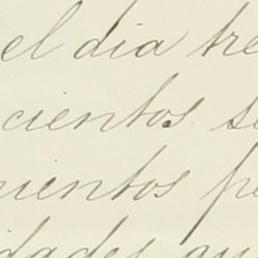 el dia tre
cientos se
uientos pe
idades qu